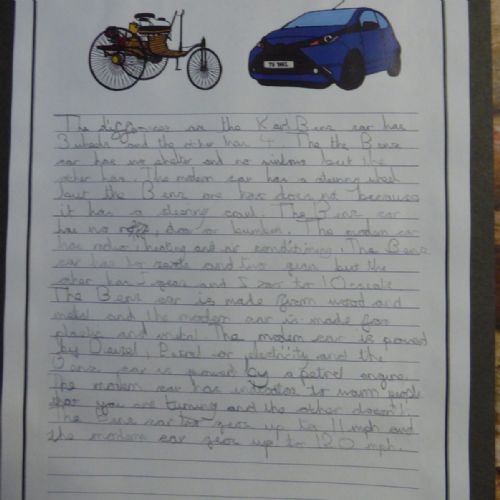 The differences are the Karl Benz car has
3 wheels and the other has 4. The the Benz
car has no shelter and no windows but the
other has. The modern car has a steering wheel
but the Benz one has does no because
it has a steering crank. The Benz car
has no roof, door or bumbers. The modern car
has radio, heating and air conditioning. The Benz
car has 1 or seats and two gears but the
other has 5 gears and 5 seats to 10
The Benz car is made from wood and
metal and the modern car is made for
plastic and metal. The modern car is powerd
by Deisel, Petrol or electricity and the
Benz car is powerd by a petrol engine.
The modern car has indicator to warn people
that you are turning and the other doesn't.
The Benz car goes up to 11 mph and
the modern car goes up to 120 mph.